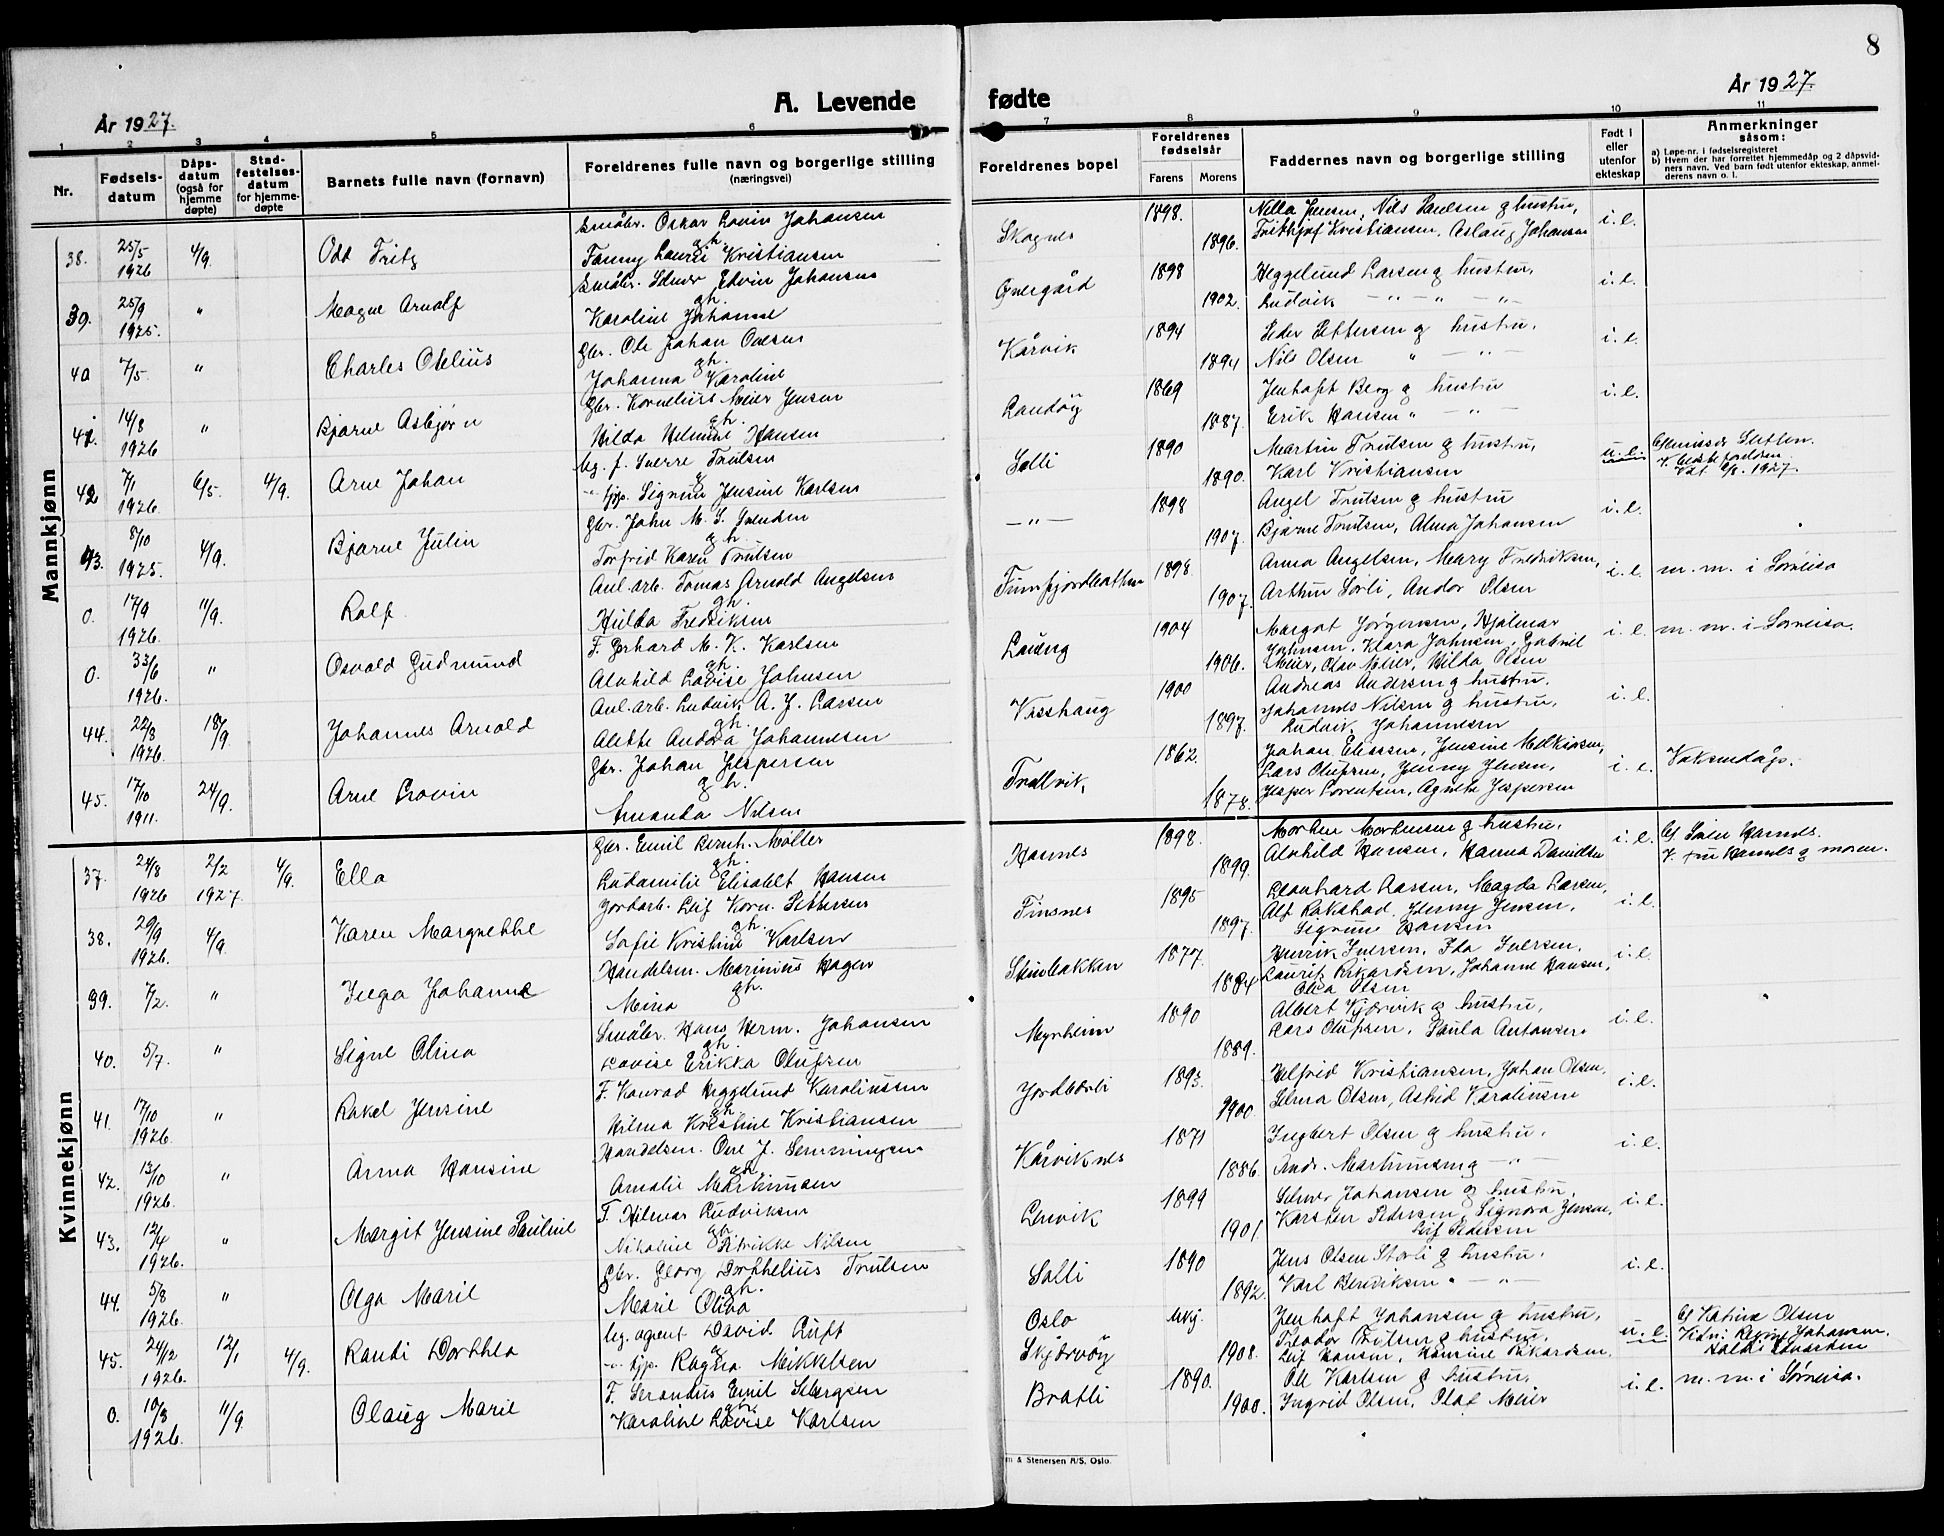 8
År 1927.
A. Levende fødte
År 1927.
1 2 3 4 5 6 7 8 9 10 11
Nr.
Fødsels-
datum
Dåps-
datum
(også for
hjemme
døpte)
Stad-
festelses-
datum
for hjemme-
døpte
Barnets fulle navn (fornavn)
Foreldrenes fulle navn og borgerlige stilling
(næringsvei)
Foreldrenes bopel
Foreldrenes
fødselsår
Farens Morens
Faddernes navn og borgerlige stilling
Født i
eller
utenfor
ekteskap
Anmerkninger
såsom:
a) Løpe-nr. i fødselsregisteret
b) Hvem der har forrettet hjemmedåp og 2 dåpsvid-
ners navn. Ved barn født utenfor ekteskap, anmel-
derens navn o. l.
Mannkjønn
38. 25/5 1926 4/9. Odd Fritz
Småbr. Oskar Lovin Johansen
gh.
Fanny Kristiansen
Skognes 1898. 1896.
Nella Jensen, Nils Paulsen g hustru,
Kristiansen, Aslaug Johansen
i. e.
39. 25/9 1925. " Magne Arnolf
Småbr. Edvin Johansen
gh.
Karoline
Øvergård 1898 1902.
Heggelund Larsen g hustru,
Ludvik — " — " — " —
i. e.
40 7/5. " Charles Otelius
Gbr. Ole Johan Olsen
gh.
Johanna Karoline
Kårvik 1894 1894
Peder Pettersen g hustru.
Nils Olsen " — " —
i. e.
41. 14/8 1926 " Bjarne Asbjørn
Gbr. Kornelius Meier Jensen
gh.
Hilda Hansen
1869 1887.
Jenhaft Berg g hustru
Erik Hansen " — " —
i. e.
42 7/1 1926. 6/5. 4/9. Arne Johan
Ug. f. Sverre Trulsen
g
— " — Jensine Karlsen
Solli 1890 1890.
Martin Trulsen g hustru,
Karl Kristiansen
u. e.
1927.
43. 8/10 1925. 4/9. Bjarne Julin
Gbr. John M. S.
gh.
Torfrid Karen Trulsen
— " — 1898 1907.
Angel Trulsen g hustru
Bjarne Trulsen, Alma Johansen
i. e.
0. 17/9 1926. 11/9. Rolf
Anl. arb. Tomas Arnold Angelsen
gh.
Hilda Fredriksen
1898. 1907.
Anna Angelsen, Mary Fredriksen,
Arthur Sørli, Andor Olsen
i. e. m. m. i Sørreisa
0. 1926. " Osvald Gudmund
F. Gerhard M. K. Karlsen
gh.
Alvhild Lovise Johnsen
1904 1906.
Margot Jørgensen, Hjalmar
Johnsen, Klara Johnsen, Gabriel
Meier, Olav Meier, Hilda Olsen
i. e. m. m. i Sørreisa.
44. 22/8 1926. 18/9. Johannes Arnold
Anl. arb. Ludvik A. J. Larsen
gh.
Alette Andora Johannesen
Visshaug 1900 1897.
Andreas Andersen g hustru.
Johannes Nilsen g hustru,
Ludvik Johannesen
i. e.
45. 17/10 1911. 24/9. Arne Lovin
Gbr. Johan Jespersen
gh.
Amanda Nilsen
Trollvik, 1862. 1878.
Johan Eliassen, Jensine Melkiorsen,
Lars Olufsen, Jenny Jensen,
Jesper Lorentsen, Agnete Jespersen
i. e. Voksendåp.
Kvinnekjønn
37. 24/8 1926 2/2 1927. 4/9. Ella
Gbr. Emil Bernh. Møller
gh.
Ludamilie Elisabet Hansen
Hannes 1898. 1899.
Morten Mortensen g hustru.
Alvhild Hansen, Hanna Davidsen
i. e.
v. fru Hannes g moren.
38. 29/9 1926. 4/9. Karen Margrethe
Jordarb. Leif Korn. Pettersen
gh.
Sofie Kristine Karlsen
Finsnes 1895 1897.
Leonhard Larsen, Magda Larsen,
Alf Rakstad, Jenny Jensen,
Sigrun Hansen
i. e.
39. 7/2. " Inga Johanne
Handelsm. Marinius Hagen
gh.
Mina
Stenbakken 1877. 1884
Henrik Iversen, Ida Iversen.
Laurits Rikardsen, Johanne Hansen,
Olea Olsen
i. e.
40. 5/7. " Signe Olina
Småbr. Hans Herm. Johansen
gh.
Lovise Erikka Olufsen
Myrheim 1890 1889.
Albert Kjærvik g hustru,
Lars Olufsen, Paula Antonsen.
i. e.
41. 17/10 1926. " Rakel Jensine
F. Konrad Heggelund Karolinssen
gh.
Hilma Kristine Kristiansen
Jordbærli 1893. 1900
Helfrid Kristiansen, Johan Olsen.
Selma Olsen, Astrid Karolinsen
i. e.
42. 13/10 1926. " Anna Hansine
Handelsm. Ove J. Simmingsen
gh.
Amalie Martinusen
Kårviknes 1871 1886.
Ingbert Olsen g hustru.
Andr. Martinussen g — " —
i. e.
43. 12/4 1926. " Margit Jensine Pauline
F. Hilmar Ludviksen
gh.
Nikoline Petrikke Nilsen
Lenvik 1899 1901.
Selmer Johansen g hustru,
Karsten Pedersen, Signora Jensen,
Leif Pedersen
i. e.
44. 5/8 1926. " Olga Marie
Gbr. Georg Dorthelius Trulsen
gh.
Marie Oliva
Solli 1890 1892.
Jens Olsen Storli g hustru.
Karl Bendiksen " — " —
i. e.
45. 24/12 1926. 12/1 4/9. Randi Dorthea
Ug. agent David Luft
g
— " — Ragna Mikkelsen
Oslo
Skjærvøy ukj. 1908.
Jenhaft Johansen g hustru.
Teodor Trulsen g hustru.
Leif Hansen, Hansine Rikardsen.
u. e.
Katina Olsen
Johansen.
0. 10/8 1926. 11/9. Olaug Marie
F. Serandus Emil Sebergsen
gh.
Karoline Lovise Karlsen
Bratli 1890. 1900.
Ole Karlsen g hustru,
Ingrid Olsen, Olaf Meier
i. e. m. m. i Sørreisa.
m & Stenersen A/S. Oslo.